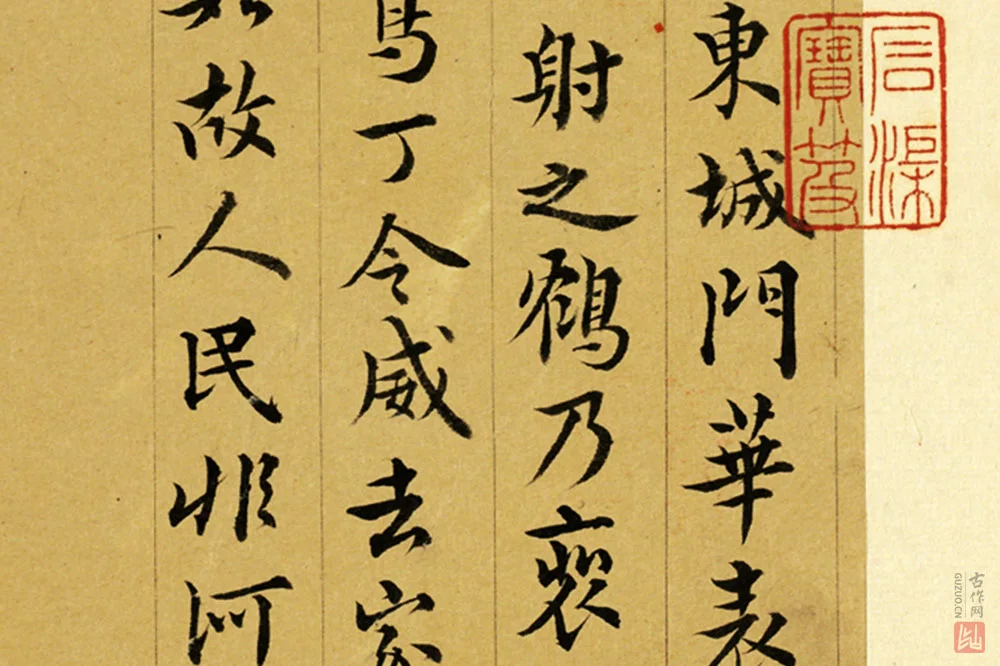 東城門華表
射之鶴乃裴
鳥丁令威去家
如故人民非何
石渠
寶笈
古作网
GUZUO.CN